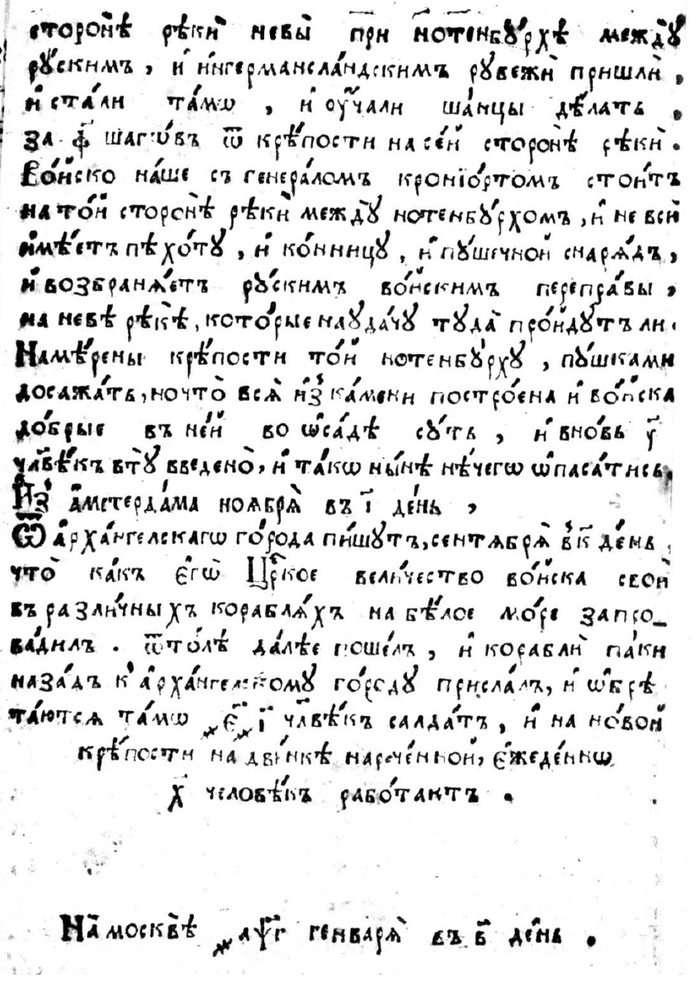 сторонѣ рѣкѝ невы̀ при нотенбꙋ́рхѣ междꙋ̀
рꙋ́скимъ, и҆ и҆нгерманслѧ́ндскимъ рꙋбежѝ пришлѝ,
и҆ ста́ли та́мѡ, и҆ ᲂу҆ча́ли ша́нцы дѣ́лать.
за ф҃ шагѡ́въ ѿ крѣ́пости на се́й сторонѣ̀ рѣкѝ.
Во́йско на́ше съ генера́ломъ кронїо́ртомъ стои́тъ
на то́й сторонѣ̀ рѣкѝ междꙋ̀ нотенбꙋ́рхомъ, и҆ не всѝ
и҆мѣ́етъ пѣхо́тꙋ, и҆ ко́нницꙋ, и҆ пꙋ́шечной снарѧ́дъ,
и҆ возбранѧ́етъ рꙋ́скимъ во́йскимъ перепра́вы,
на невѣ̀ рѣкѣ̀, кото́рые наꙋда́чꙋ тꙋда̀ про́йдꙋтъ ли.
Намѣ́рены крѣ́пости то́й нотенбꙋ́рхꙋ, пꙋ́шками
досажа́ть, но что̀ всѧ̀ и҆з̾ ка́мени постро́ена и҆ во́йска
до́брые въ не́й во ѡ҆са́дѣ сꙋ́ть, и҆ вно́вь у҃
чл҃вѣ́къ втꙋ̀ введено̀, и҆ та́кѡ ны́нѣ не́чегѡ ѡ҆паса́тисѧ,
И҆з̾ а҆мстерда́ма ноѧбрѧ̀ въ і҃ де́нь,
Ѿ а҆рха́нгелскагѡ го́рода пи́шꙋтъ, сентѧбрѧ̀ в к҃ де́нь
что̀ ка́къ є҆гѡ̀ Цр҃кое вели́чество во́йска своѝ
въ разли́чныхъ корабла́хъ на бѣ́лое мо́ре запро_
ва́дилъ. ѿто́лѣ да́лѣе поше́лъ, и҆ кораблѝ па́ки
наза́дъ к̾ а҆рха́нгелскомꙋ го́родꙋ присла́лъ, и҆ ѡ҆брѣ
та́ютсѧ та́мѡ ҂є҃ ҂і҃ чл҃вѣ́къ салда́тъ, и҆ на но́вой
крѣ́пости на дви́нкѣ нарече́нной, є҆жеде́ннѡ
х҃ человѣ́къ рабо́таютъ.
На москвѣ̀ ҂аѱ҃г генварѧ̀ въ в҃ де́нь.